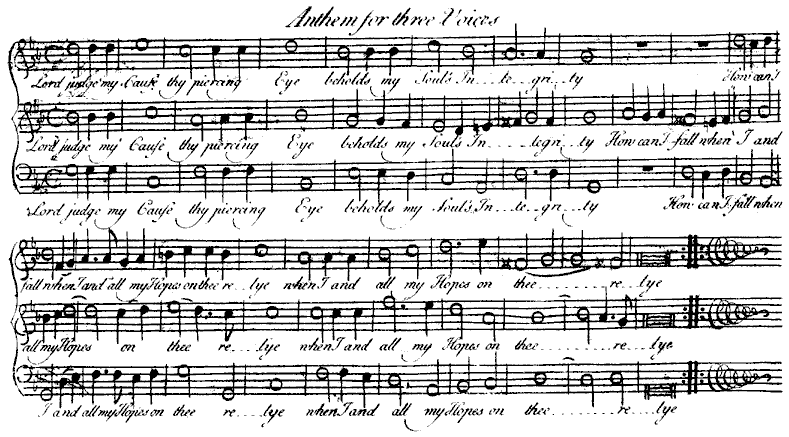 Anthem for three Voices
Lord judge my Cause thy piercing Eye beholds my Soul's In...te...gri...ty How can I
Lord judge my Cause thy piercing Eye beholds my Soul's In......tegri...ty How can I fall when I and
Lord judge my Cause thy piercing Eye beholds my Soul's In...te...gri...ty How can I fall when
fall when I and all my Hopes on thee re...lye when I and all my Hopes on thee..........re...lye
all my Hopes on thee re...lye when I and all my Hopes on thee..........re...lye
I and all my Hopes on thee re...lye when I and all my Hopes on thee..........re...lye